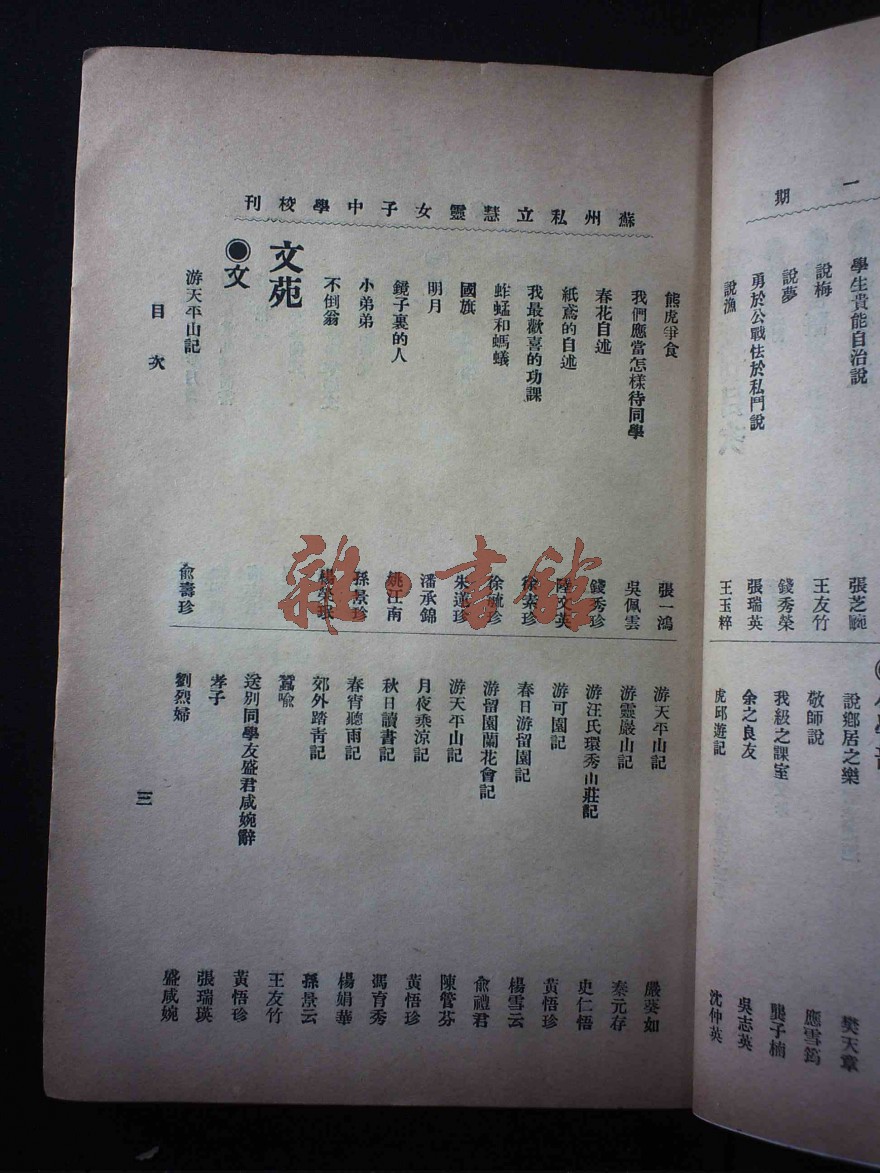 一期
學生貴能自治說 張芝
說梅 王友竹
說夢 錢秀榮
勇於公戰怯於私鬥說 張瑞英
說漁 王玉粹
說鄉居之樂 樊天章
敬師說 應雪筠
我級之課室 龔子楠
余之良友 吳志英
虎邱遊記 沈仲英
蘇州私立慧靈女子中學校刊
熊虎爭食 張一鴻
我們應當怎樣待同學 吳佩雲
春花自述 錢秀珍
紙鳶的自述 陸文英
我最歡喜的功課 徐素珍
蚱蜢和螞蟻 徐毓珍
國旗 朱蓮珍
明月 潘承錦
鏡子裏的人 姚江南
小弟弟 孫景珍
不倒翁 楊榮珉
文苑
◉文
游天平山記 俞壽珍
游天平山記 嚴葵如
游靈巖山記 秦元存
游汪氏環秀山莊記 史仁悟
游可園記 黃悟珍
春日游留園記 楊雪云
游留園蘭花會記 俞禮君
游天平山記 陳管芬
月夜乘涼記 黃悟珍
秋日讀書記 馮育秀
春宵聽雨記 楊娟華
郊外踏青記 孫景云
蠶喻 王友竹
送別同學友盛君咸婉辭 黃悟珍
孝子 張瑞瑛
劉烈婦 盛咸婉
目次
三
雜·書館